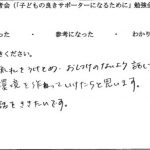 者会（「子どもの良きサポーターになるために」勉強会
った ・ 参考になった ・ わかり
きください。
れをうけとめ、おしつけのないよう 話して
環境を作っていけたらと思います。
話をききたいです。